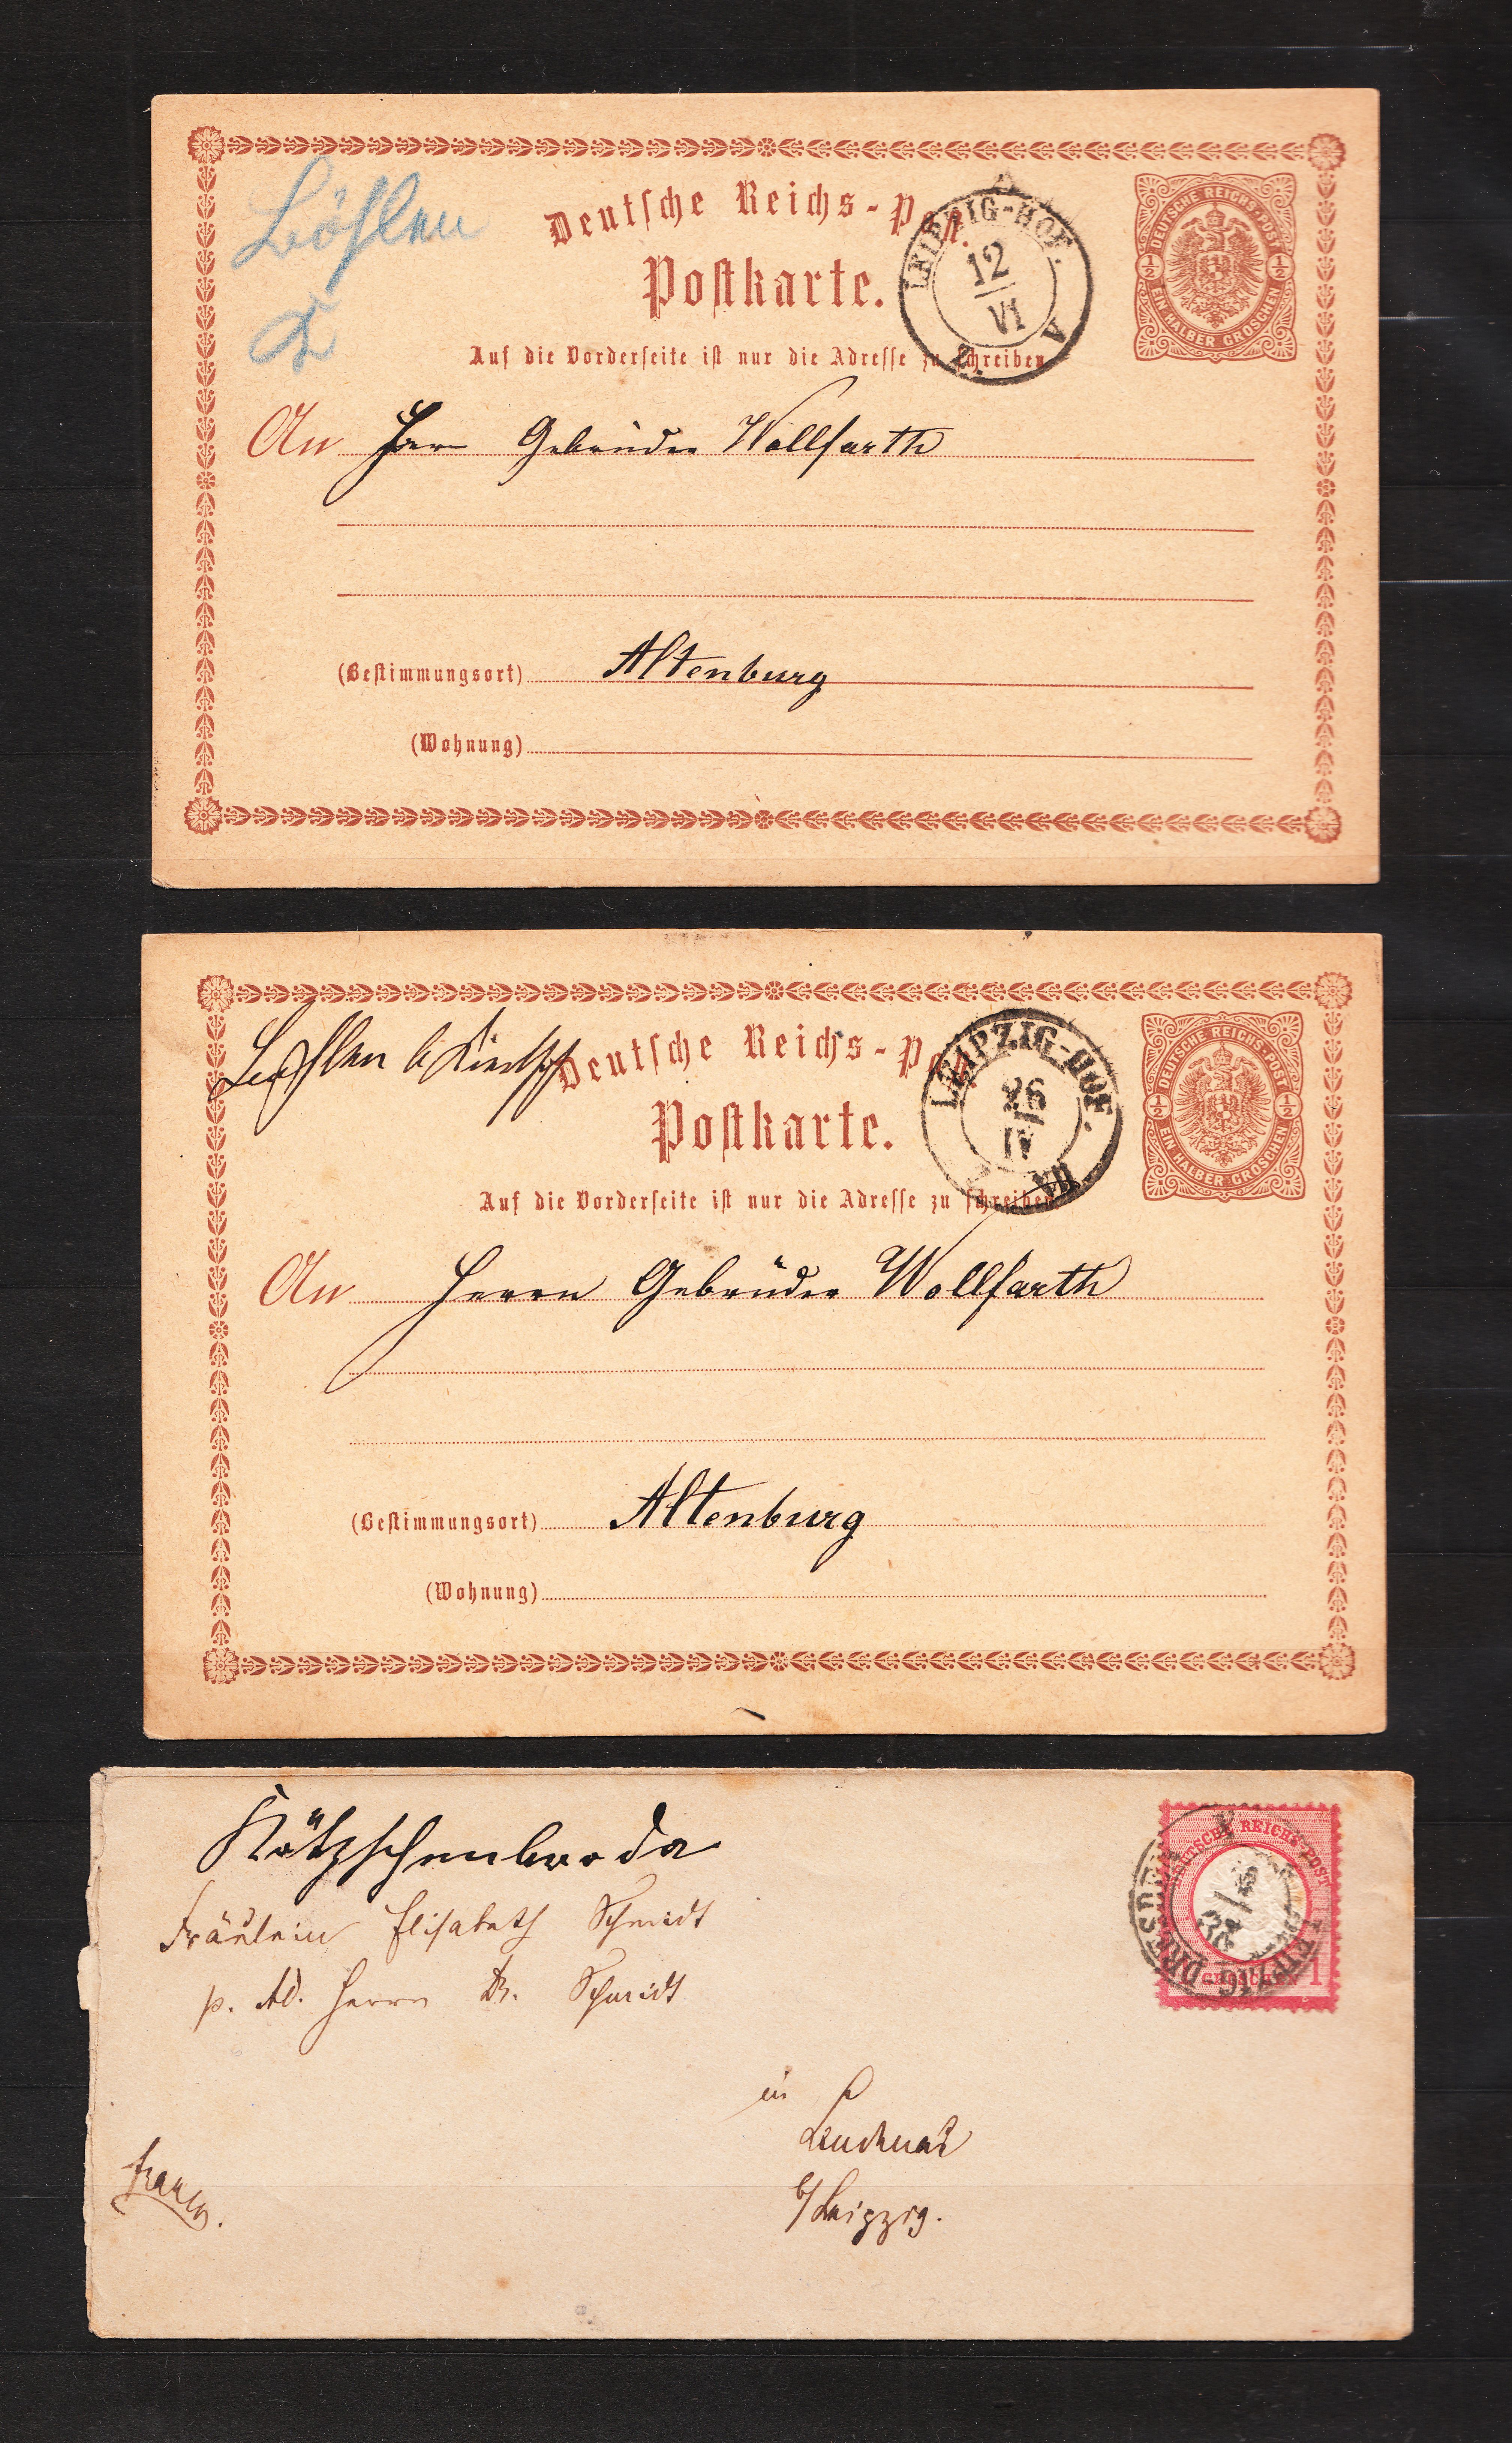 Böhlen
Deutsche Reichs-Post.
Postkarte.
LEIPZIG-HOF.
12
VI
V
DEUTSCHE REICHS-POST
½ ½
EIN HALBER GROSCHEN
Auf die Vorderseite ist nur die Adresse zu schreiben
An Herrn Gebrüder Wollfarth
(Bestimmungsort) Altenburg
(Wohnung)
Deutsche Reichs-Post
Postkarte.
LEIPZIG-HOF.
26
IV
DEUTSCHE REICHS-POST
½ ½
EIN HALBER GROSCHEN
Auf die Vorderseite ist nur die Adresse zu schreiben
An Herrn Gebrüder Wollfarth
(Bestimmungsort) Altenburg
(Wohnung)
Kötzschenbroda
DEUTSCHE REICHS-POST
1 GROSCHEN 1
DRESDEN LEIPZIG
Fräulein Elisabeth Schmidt
p. Ad. Herrn Dr. Schmidt
in
Lindenau
b/Leipzig.
franco.